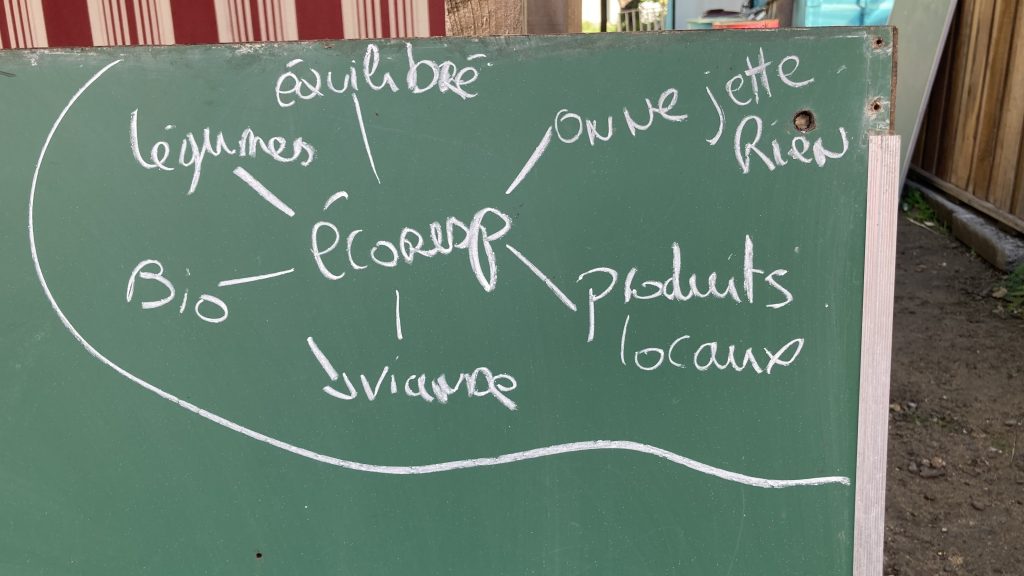 équilibré
légumes
on ne jette
Rien
écoresp
Bio
produits
locaux
↘ viande